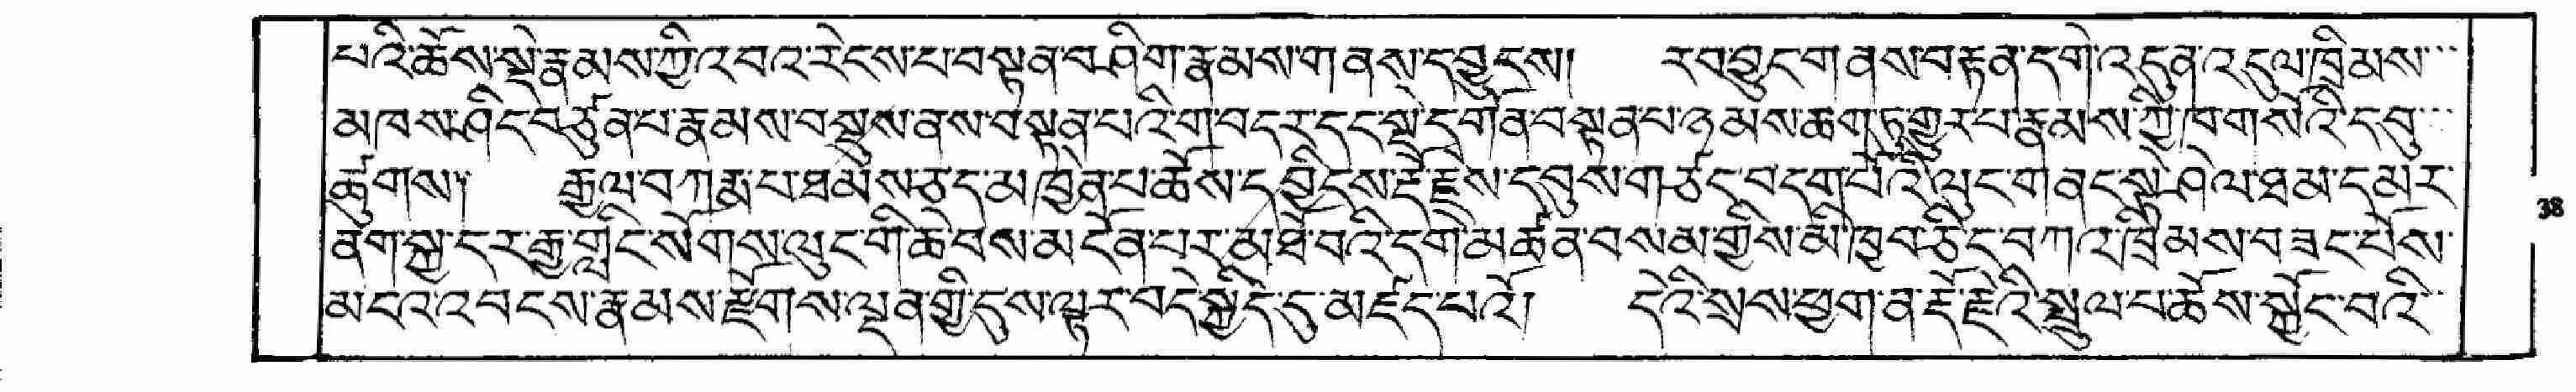 པའི་ཆོས་སྡེ་རྣམས་ཀྱི་འབའ་རེངས་པ་བསྟན་བཤིག་རྣམས་གནས་དབྱུངས།    རབ་བྱུང་གནས་བརྟན་དགེ་འདུན་འདུལ་ཁྲིམས་
མཁས་ཤིང་བཙུན་པ་རྣམས་བསྡུས་ནས་བསྟན་པའི་གབདར་དང་སྡེ་དགོན་བསྟན་པ་ཉམས་ཆག་ཏུ་གྱུར་པ་རྣམས་ཀྱི་ཁ་གསོའི་དབུ་
ཚུགས།    རྒྱལ་བ་ཀརྨ་པ་ཐམས་ཅད་མཁྱེན་པ་ཆོས་དབྱིངས་རྡོ་རྗེས་དབུས་གཙང་བདག་པོའི་ལུང་གནང་སྟེ་ཤེལ་ཐམ་དམར་
ནག་སྐྱ་དར་རྒྱ་གླིང་སོགས་ལུང་གི་ཆེ་བས་མངོན་པར་མཐོ་བའི་དགེ་མཚན་བསམ་གྱིས་མི་ཁྱབ་ཅིང་བཀའ་ཁྲིམས་བཟང་པོས་
མངའ་འབངས་རྣམས་རྫོགས་ལྡན་གྱི་དུས་ལྟར་བདེ་སྐྱིད་དུ་མཛད་པའོ།    དེའི་སྲས་ཕྱག་ན་རྡོ་རྗེའི་སྤྲུལ་པ་ཆོས་སྐྱོང་བའི་
38